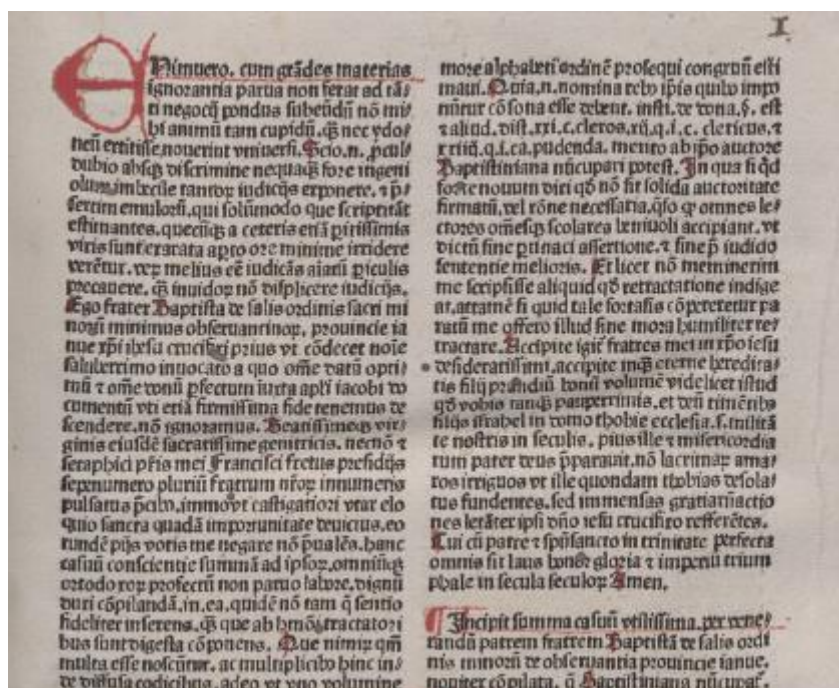 I
ENimuero. cum grãdes materias
ignorantia parua non ferat ad tã
ti negocij pondus subeũdũ nõ mi
hi animũ tam cupidũ. qƺ nec ydo
neũ extitisse. nouerint vniuersi. Scio.n. ꝓcul
dubio absqƺ discrimine nequaqƺ fore ingeni
olum imbecile tantoꝝ iudicijs exponere. ⁊ p̃
sertim emuloꝝ. qui solũmodo que scriptitãt
estimantes. quecũqƺ a ceteris etiã ꝑitissimis
viris sunt exarata apto ore minime irridere
verẽtur. veꝝ melius eẽ iudicãs aiarũ ꝑiculis
precauere. qƺ inuidoꝝ nõ displicere iudicijs.
Ego frater Baptista de salis ordinis sacri mi
noꝝ minimus obseruantinoꝝ. prouincie ia
nue xp̃i ihesu crucifixi prius vt cõdecet noĩe
saluberrimo inuocato a quo om̃e datũ opti⸗
mũ ⁊ om̃e donũ ꝑfectum iuxta apl̃i iacobi do
cumentũ vti etiã firmissima fide tenemus de
scendere. nõ ignoramus. Beatissimeqƺ vir⸗
ginis eiusdẽ sacratissime genitricis. necnõ ⁊
seraphici pr̃is mei Francisci fretus presidijs
sepenumero pluriũ fratrum nr̃oꝝ innumeris
pulsatus p̃cibƺ. immo vt castigatiori vtar elo
quio sancta quadã importunitate deuictus. eo
rundẽ pijs votis me negare nõ p̃ualẽs. hanc
casuũ conscientie summã ad ipsoꝝ. omniũqƺ
ortodoxoꝝ profectũ non paruo labore. dignũ
duxi cõpilandã. in.ea. quidẽ nõ tam q̃ sentio
fideliter inserens. qƺ que ab hmõi tractatori
bus sunt digesta cõponens. Que nimiꝝ qm̃
multa esse noscũtur. ac multiplicibƺ hinc in⸗
de diffusa codicibus. adeo vt vno volumine
more alphabeti ordinẽ prosequi congruũ esti
maui. Quia.n. nomina rebƺ ip̃is quibƺ impo
nũtur cõsona esse debent. insti. de dona. §. est
⁊ aliud. dist. xxi. c. cleros. xij. q. i. c. clericus. ⁊
xxiiij. q. i. ca. pudenda. merito ab ip̃o auctore
Baptistiniana nũcupari potest. In qua si qd̃
forte nouum dixi qd̃ nõ sit solida auctoritate
firmatũ. vel rõne necessaria. q̃so ꝙ omnes le⸗
ctores om̃esqƺ scolares beniuoli accipiant. vt
dictũ sine ꝑtinaci assertione. ⁊ sine p̃iudicio
sententie melioris. Et licet nõ meminerim
me scripsisse aliquid qd̃ retractatione indige
at. attamẽ si quid tale fortassis cõpeteretur pa
ratũ me offero illud sine mora humiliter re⸗
tractare. Accipite igit̃ fratres mei in xp̃o iesu
desideratissimi. accipite inqƺ eterne heredita⸗
tis filij p̃sidiũ donũ volumẽ videlicet istud
qd̃ vobis tanqƺ pauperrimis. et deũ timẽtibƺ
filijs israhel in domo thobie ecclesia. s. militã
te nostris in seculis. pius ille ⁊ misericordia
rum pater deus p̃parauit. nõ lacrimaꝝ ama⸗
ros irriguos vt ille quondam thobias desola⸗
tus fundentes. sed immensas gratiarũactio
nes letãter ipsi dño iesu crucifixo refferẽtes.
Cui cũ patre ⁊ spũsancto in trinitate perfecta
omnis sit laus honor gloria ⁊ imperiũ trium
phale in secula seculoꝝ Amen.
¶ Incipit summa casuũ vtilissima. per vene⸗
randũ patrem fratrem Baptistã de salis ordi
nis minorũ de obseruantia prouincie ianue.
nouiter cõpilata. q̃ Baptistiniana nũcupat̃.